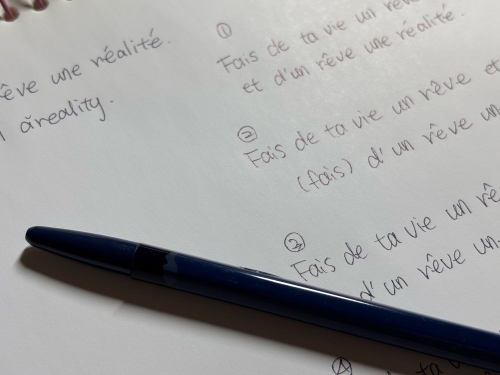 rêve une réalité.
areality.
①
Fais de ta vie un rêve
et d'un rêve une réalité.
②
Fais de ta vie un rêve et
(fais) d'un rêve un
③
Fais de ta vie un rê
d'un rêve un
④
ta vi